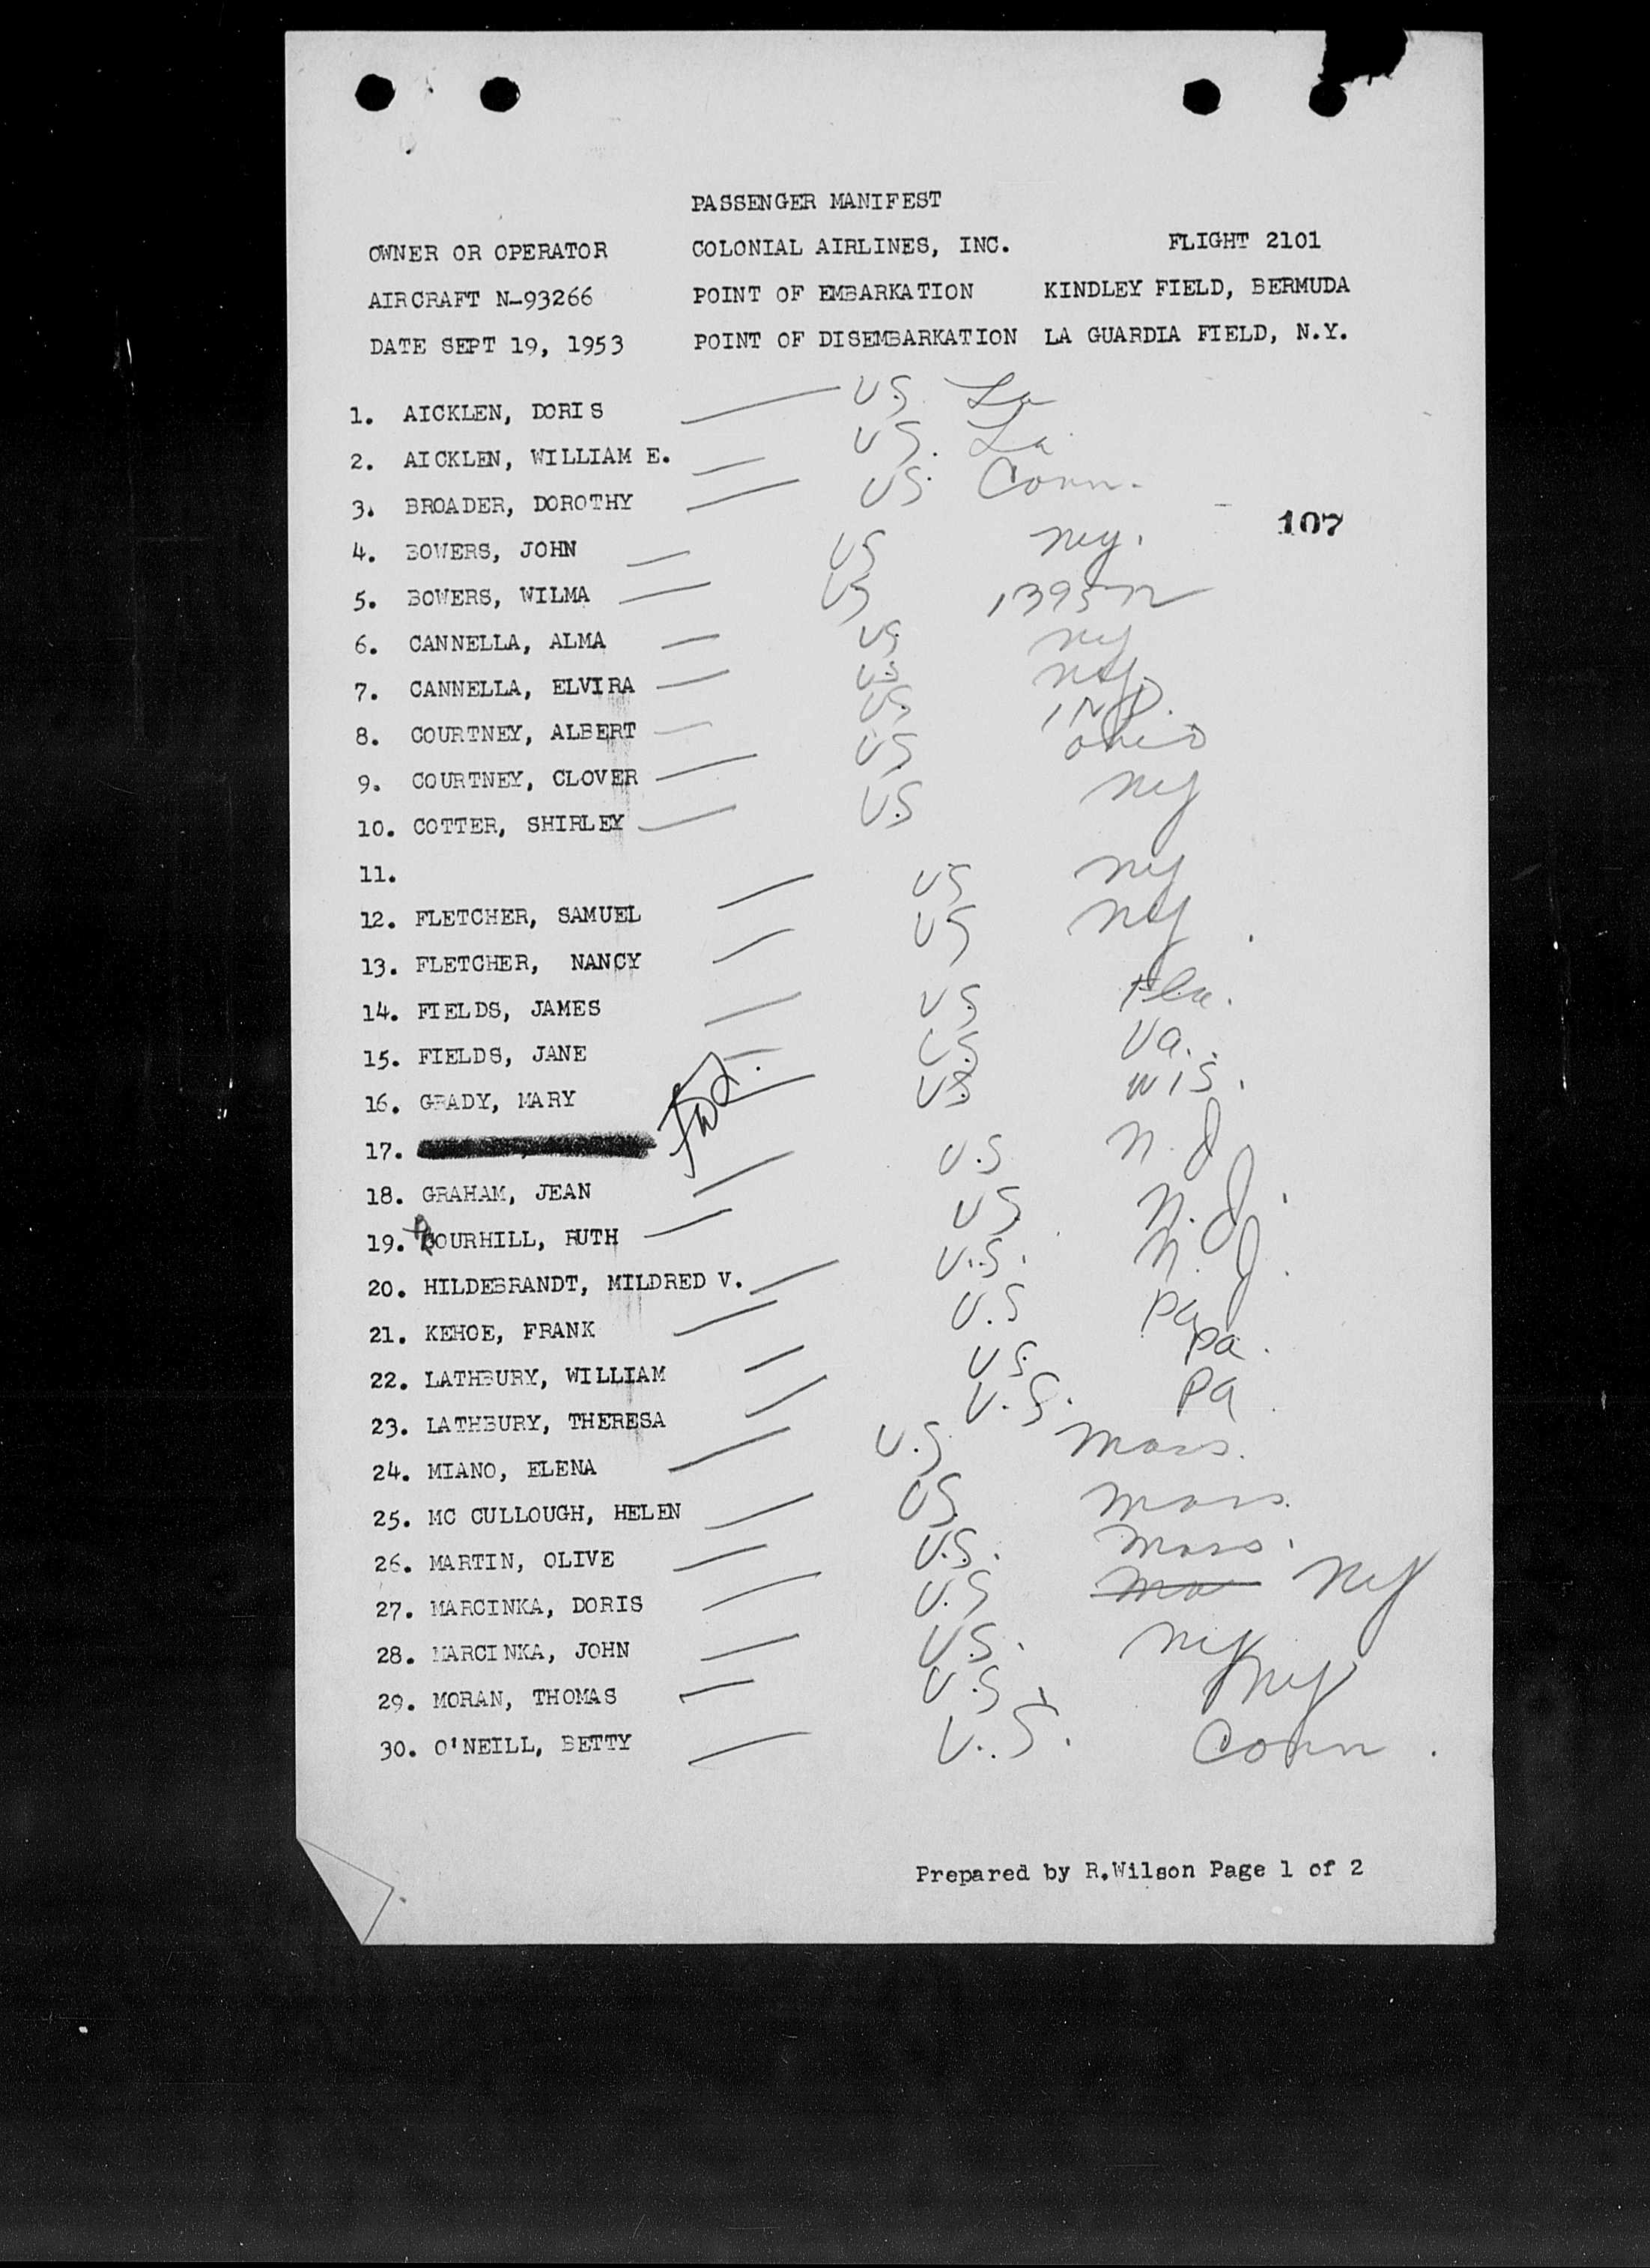 PASSENGER MANIFEST
OWNER OR OPERATOR COLONIAL AIRLINES, INC. FLIGHT 2101
AIRCRAFT N-93266 POINT OF EMBARKATION KINDLEY FIELD, BERMUDA
DATE SEPT 19, 1953 POINT OF DISEMBARKATION LA GUARDIA FIELD, N.Y.
1. AICKLEN, DORIS — U.S. La
2. AICKLEN, WILLIAM E. — U.S. La
3. BROADER, DOROTHY — U.S. Conn.
107
4. BOWERS, JOHN — US NY.
5. BOWERS, WILMA — US
6. CANNELLA, ALMA — US NY
7. CANNELLA, ELVIRA — US NY
8. COURTNEY, ALBERT — US IND.
9. COURTNEY, CLOVER — US Ohio
10. COTTER, SHIRLEY — U.S NY
11.
12. FLETCHER, SAMUEL — US NY
13. FLETCHER, NANCY — US NY
14. FIELDS, JAMES — US Fla.
15. FIELDS, JANE — US Va.
16. GRADY, MARY — US WIS.
17.
18. GRAHAM, JEAN — U.S N.J
19. OURHILL, RUTH — US N.J.
20. HILDEBRANDT, MILDRED V. — U.S. N.J.
21. KEHOE, FRANK — U.S Pa
22. LATHBURY, WILLIAM — US Pa.
23. LATHBURY, THERESA — U.S. Pa
24. MIANO, ELENA — U.S. Mass.
25. MC CULLOUGH, HELEN — US Mass.
26. MARTIN, OLIVE — U.S. Mass.
27. MARCINKA, DORIS — U.S NY
28. MARCINKA, JOHN — U.S. NY
29. MORAN, THOMAS — U.S NY
30. O'NEILL, BETTY — U.S. Conn.
Prepared by R.Wilson Page 1 of 2